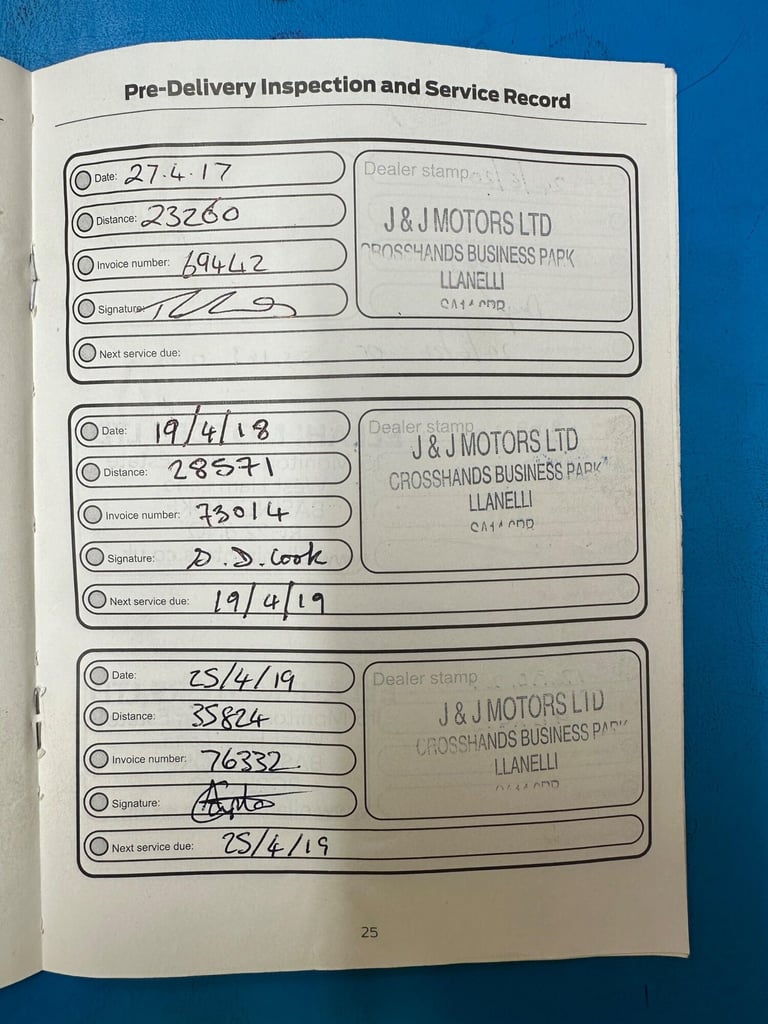 Pre-Delivery Inspection and Service Record
Date: 27.4.17
Distance: 23260
Invoice number: 69442
Signature:
Next service due:
Dealer stamp
J & J MOTORS LTD
CROSSHANDS BUSINESS PARK
LLANELLI
Date: 19/4/18
Distance: 28571
Invoice number: 73014
Signature: D.D. Cook
Next service due: 19/4/19
Dealer stamp
J & J MOTORS LTD
CROSSHANDS BUSINESS PARK
LLANELLI
Date: 25/4/19
Distance: 35824
Invoice number: 76332
Signature:
Next service due: 25/4/19
Dealer stamp
J & J MOTORS LTD
CROSSHANDS BUSINESS PARK
LLANELLI
25